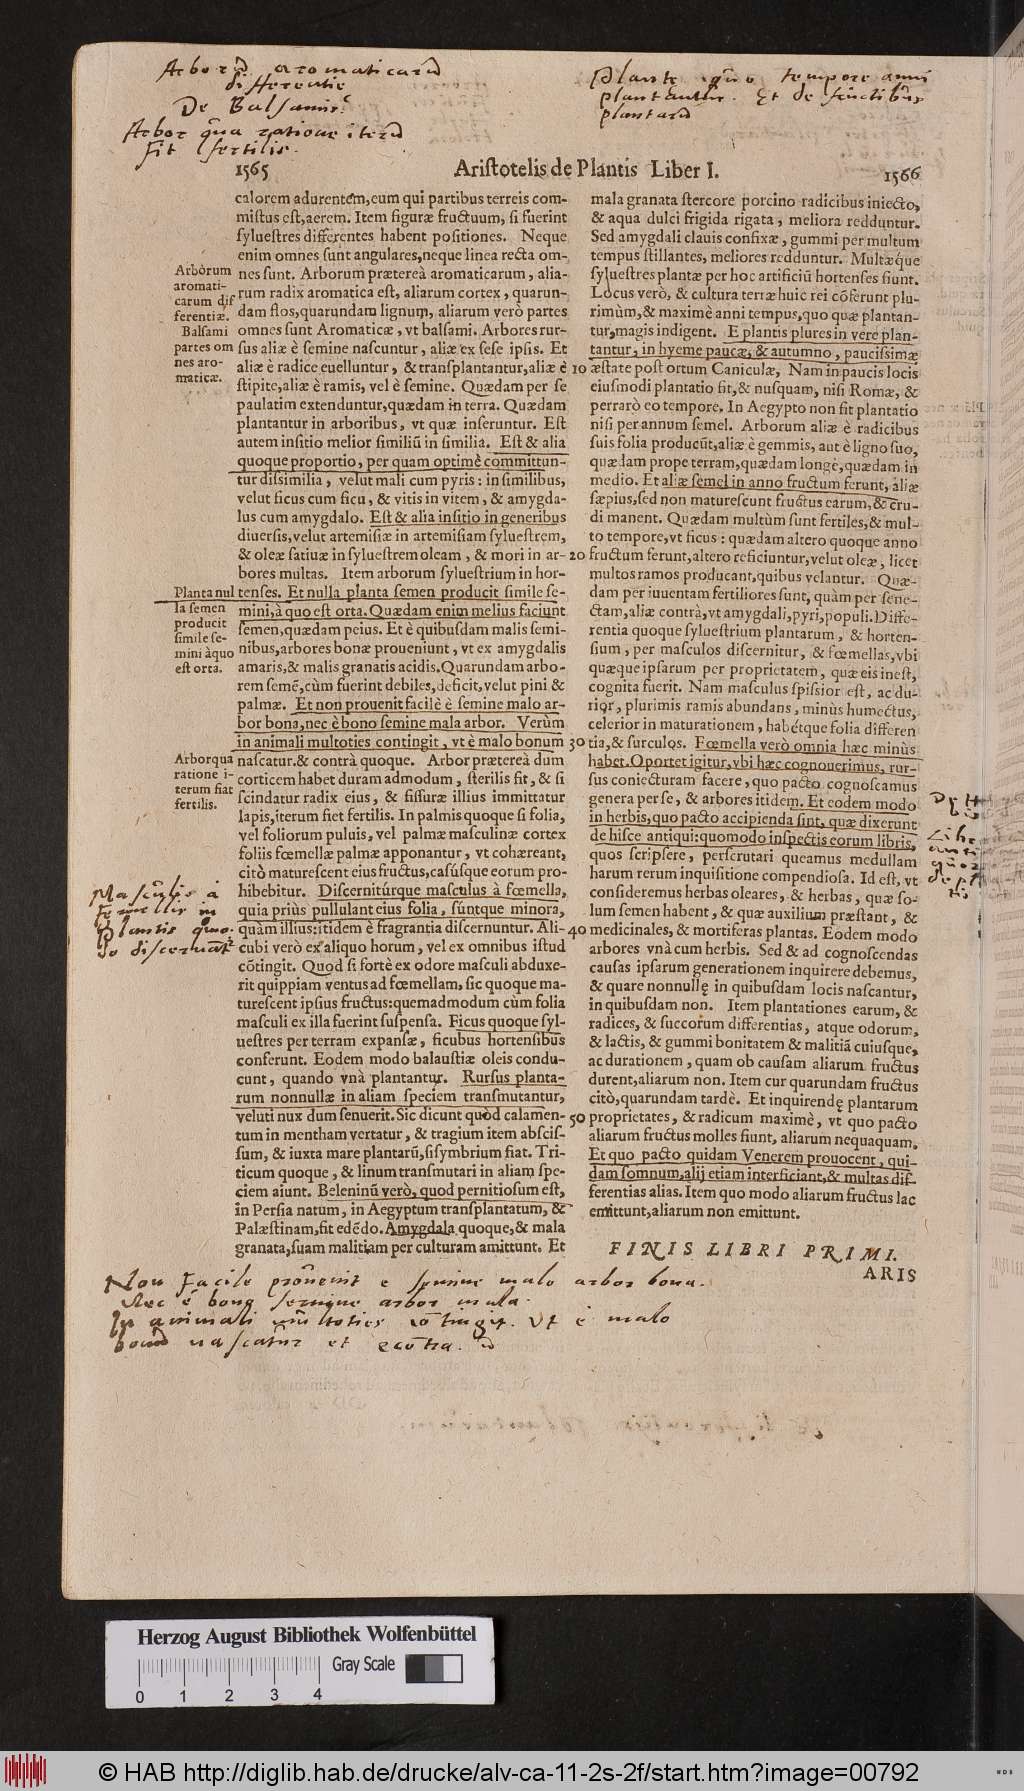 Arborũ aromaticarũ
differentie
De Balsamis.
Arbor qua ratione iterũ
fit fertilis.
Plante quo tempore anni
plantantur. Et de fructibus
plantarũ
1565
Aristotelis de Plantis Liber I.
1566
calorem adurentem, eum qui partibus terreis com-
mistus est, aerem. Item figuræ fructuum, si fuerint
syluestres differentes habent positiones. Neque
enim omnes sunt angulares, neque linea recta om-
nes sunt. Arborum prætereà aromaticarum, alia-
rum radix aromatica est, aliarum cortex, quarun-
dam flos, quarundam lignum, aliarum verò partes
omnes sunt Aromaticæ, vt balsami. Arbores rur-
sus aliæ è semine nascuntur, aliæ ex sese ipsis. Et
aliæ è radice euelluntur, & transplantantur, aliæ è
stipite, aliæ è ramis, vel è semine. Quædam per se
paulatim extenduntur, quædam in terra. Quædam
plantantur in arboribus, vt quæ inseruntur. Est
autem insitio melior similiũ in similia. Est & alia
quoque proportio, per quam optimè committun-
tur dissimilia, velut mali cum pyris: in similibus,
velut ficus cum ficu, & vitis in vitem, & amygda-
lus cum amygdalo. Est & alia insitio in generibus
diuersis, velut artemisiæ in artemisiam syluestrem,
& oleæ satiuæ in syluestrem oleam, & mori in ar-
bores multas. Item arborum syluestrium in hor-
tenses. Et nulla planta semen producit simile se-
mini, à quo est orta. Quædam enim melius faciunt
semen, quædam peius. Et è quibusdam malis semi-
nibus, arbores bonæ proueniunt, vt ex amygdalis
amaris, & malis granatis acidis. Quarundam arbo-
rem semẽ, cùm fuerint debiles, deficit, velut pini &
palmæ. Et non prouenit facilè è semine malo ar-
bor bona, nec è bono semine mala arbor. Verùm
in animali multoties contingit, vt è malo bonum
nascatur. & contrà quoque. Arbor prætereà dum
corticem habet duram admodum, sterilis fit, & si
scindatur radix eius, & fissuræ illius immittatur
lapis, iterum fiet fertilis. In palmis quoque si folia,
vel foliorum puluis, vel palmæ masculinæ cortex
foliis fœmellæ palmæ apponantur, vt cohæreant,
citò maturescent eius fructus, casúsque eorum pro-
hibebitur. Discernitúrque masculus à fœmella,
quia priùs pullulant eius folia, súntque minora,
quàm illius: itidem è fragrantia discernuntur. Ali-
cubi verò ex aliquo horum, vel ex omnibus istud
cõtingit. Quod si fortè ex odore masculi abduxe-
rit quippiam ventus ad fœmellam, sic quoque ma-
turescent ipsius fructus: quemadmodum cùm folia
masculi ex illa fuerint suspensa. Ficus quoque syl-
uestres per terram expansæ, ficubus hortensibus
conferunt. Eodem modo balaustiæ oleis condu-
cunt, quando vnà plantantur. Rursus planta-
rum nonnullæ in aliam speciem transmutantur,
veluti nux dum senuerit. Sic dicunt quòd calamen-
tum in mentham vertatur, & tragium item abscis-
sum, & iuxta mare plantarũ, sisymbrium fiat. Tri-
ticum quoque, & linum transmutari in aliam spe-
ciem aiunt. Beleninũ verò, quod pernitiosum est,
in Persia natum, in Aegyptum transplantatum, &
Palæstinam, fit edẽdo. Amygdala quoque, & mala
granata, suam malitiam per culturam amittunt. Et
Arborum
aromati-
carum dif
ferentiæ.
Balsami
partes om
nes aro-
maticæ.
Planta nul
la semen
producit
simile se-
mini à quo
est orta.
Arbor qua
ratione i-
terum fiat
fertilis.
Masculis à
femellis in
Plantis quo-
do discernãtur
10
20
30
40
50
mala granata stercore porcino radicibus iniecto,
& aqua dulci frigida rigata, meliora redduntur.
Sed amygdali clauis confixæ, gummi per multum
tempus stillantes, meliores redduntur. Multæque
syluestres plantæ per hoc artificiũ hortenses fiunt.
Locus verò, & cultura terræ huic rei cõferunt plu-
rimùm, & maximè anni tempus, quo quæ plantan-
tur, magis indigent. E plantis plures in vere plan-
tantur, in hyeme paucæ, & autumno, paucissimæ
æstate post ortum Caniculæ, Nam in paucis locis
eiusmodi plantatio fit, & nusquam, nisi Romæ, &
perrarò eo tempore. In Aegypto non fit plantatio
nisi per annum semel. Arborum aliæ è radicibus
suis folia producũt, aliæ è gemmis, aut è ligno suo,
quædam prope terram, quædam longè, quædam in
medio. Et aliæ semel in anno fructum ferunt, aliæ
sæpius, sed non maturescunt fructus earum, & cru-
di manent. Quædam multùm sunt fertiles, & mul-
to tempore, vt ficus: quædam altero quoque anno
fructum ferunt, altero reficiuntur, velut oleæ, licet
multos ramos producant, quibus velantur. Quæ-
dam per iuuentam fertiliores sunt, quàm per sene-
ctam, aliæ contrà, vt amygdali, pyri, populi. Diffe-
rentia quoque syluestrium plantarum, & horten-
sium, per masculos discernitur, & fœmellas, vbi
quæque ipsarum per proprietatem, quæ eis inest,
cognita fuerit. Nam masculus spissior est, ac du-
rior, plurimis ramis abundans, minùs humectus,
celerior in maturationem, habétque folia differen
tia, & surculos. Fœmella verò omnia hæc minùs
habet. Oportet igitur, vbi hæc cognouerimus, rur-
sus coniecturam facere, quo pacto cognoscamus
genera per se, & arbores itidem. Et eodem modo
in herbis, quo pacto accipienda sint, quæ dixerunt
de hisce antiqui: quomodo inspectis eorum libris,
quos scripsere, perscrutari queamus medullam
harum rerum inquisitione compendiosa. Id est, vt
consideremus herbas oleares, & herbas, quæ so-
lum semen habent, & quæ auxilium præstant, &
medicinales, & mortiferas plantas. Eodem modo
arbores vnà cum herbis. Sed & ad cognoscendas
causas ipsarum generationem inquirere debemus,
& quare nonnullę in quibusdam locis nascantur,
in quibusdam non. Item plantationes earum, &
radices, & succorum differentias, atque odorum,
& lactis, & gummi bonitatem & malitiã cuiusque,
ac durationem, quam ob causam aliarum fructus
durent, aliarum non. Item cur quarundam fructus
citò, quarundam tardè. Et inquirendę plantarum
proprietates, & radicum maximè, vt quo pacto
aliarum fructus molles fiunt, aliarum nequaquam.
Et quo pacto quidam Venerem prouocent, qui-
dam somnum, alij etiam interficiant, & multas dif
ferentias alias. Item quo modo aliarum fructus lac
emittunt, aliarum non emittunt.
FINIS LIBRI PRIMI.
ARIS
Non facile prouenit e semine malo arbor bona.
Nec è bona semine arbor mala.
In animali multoties cõtingit. Vt è malo
bonũ nascatur et econtra.
Herzog August Bibliothek Wolfenbüttel
Gray Scale
0 1 2 3 4
© HAB http://diglib.hab.de/drucke/alv-ca-11-2s-2f/start.htm?image=00792